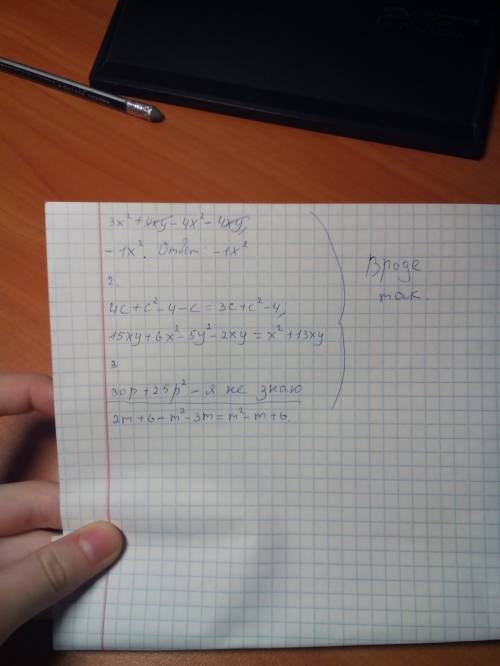 3x² + 4xy - 4x² - 4xy,
- 1x². Ответ: -1x²
2.
4c + c² - 4 - c = 3c + c² - 4,
15xy + 6x² - 5y² - 2xy = x² + 13xy
3.
30p + 25p² - я не знаю
2m + 6 - m² - 3m = m² - m + 6.
Вроде
так.